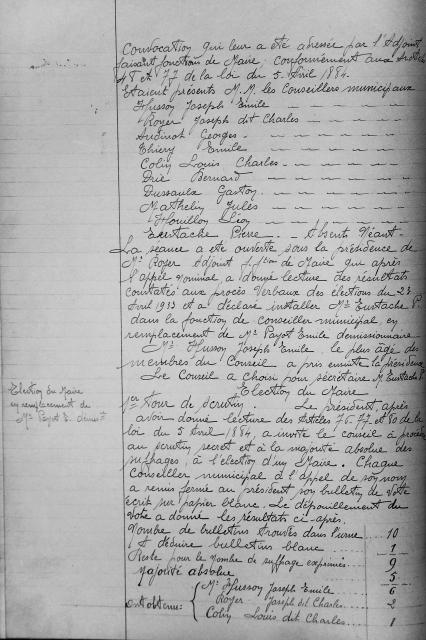 Convocation qui leur a été adressée par l'Adjoint
faisant fonctions de Maire, conformément aux Articles
48 et 77 de la loi du 5 Avril 1884.
Etaient présents M.M. les Conseillers municipaux
Husson Joseph Emile
Royer Joseph dit Charles
Audinot Georges
Thiery Emile
Colin Louis Charles
Brie Bernard
Dussaulx Gaston
Mathelin Jules
Houillon Léon
Eustache Pierre. - Absents Néant.
La séance a été ouverte sous la présidence de
Mr Royer Adjoint f. fon de Maire qui après
l'appel nominal, a donné lecture des résultats
constatés aux procès Verbaux des élections du 23
Avril 1933 et a déclaré installer Mr Eustache P.
dans la fonction de conseiller municipal, en
remplacement de Mr Payot Emile démissionnaire
Mr Husson Joseph Emile, le plus âgé des
membres du Conseil a pris ensuite la présidence
Le Conseil a choisi pour secrétaire M. Eustache P.
Election du Maire
Election du Maire
en remplacement de
Mr Payot E. démiss
1er Tour de scrutin. Le président, après
avoir donné lecture des Articles 76.77 et 80 de la
loi du 5 Avril 1884, a invité le conseil à procéder
au scrutin secret et à la majorité absolue des
suffrages, à l'élection d'un Maire. Chaque
Conseiller municipal à l'appel de son nom
a remis fermé au président son bulletin de vote
écrit sur papier blanc. Le dépouillement du
vote a donné les résultats ci-après.
Nombre de bulletins trouvés dans l'urne 10
A déduire bulletins blanc 1
Reste pour le nombre de suffrage exprimés 9
Majorité absolue 5
ont obtenu: Mr Husson Joseph Emile 6
Royer Joseph dit Charles 2
Colin Louis dit Charles 1